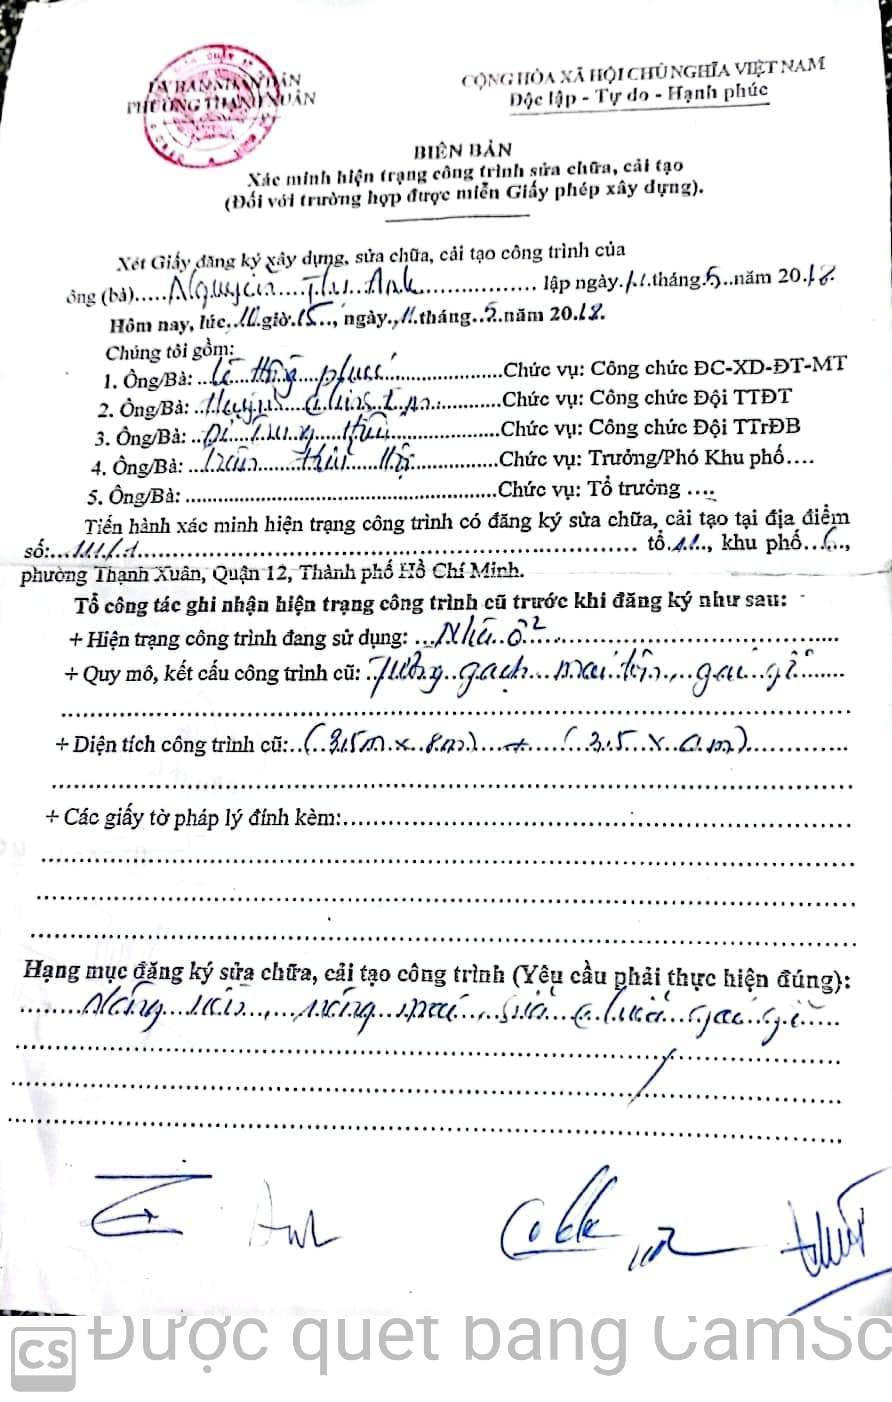 ỦY BAN NHÂN DÂN
PHƯỜNG THẠNH XUÂN
CỘNG HÒA XÃ HỘI CHỦ NGHĨA VIỆT NAM
Độc lập - Tự do - Hạnh phúc
BIÊN BẢN
Xác minh hiện trạng công trình sửa chữa, cải tạo
(Đối với trường hợp được miễn Giấy phép xây dựng).
Xét Giấy đăng ký xây dựng, sửa chữa, cải tạo công trình của
ông (bà)..... Nguyễn Thị Anh .................. lập ngày.11.tháng.5..năm 2018.
Hôm nay, lúc..10.giờ.15.., ngày..11.tháng..5.năm 2018.
Chúng tôi gồm:
1. Ông/Bà: ..Lê Hồng Phước..................Chức vụ: Công chức ĐC-XD-ĐT-MT
2. Ông/Bà: ..Huỳnh ..................Chức vụ: Công chức Đội TTĐT
3. Ông/Bà: ..................Chức vụ: Công chức Đội TTrĐB
4. Ông/Bà: Trần ..................Chức vụ: Trưởng/Phó Khu phố....
5. Ông/Bà: ..................................................Chức vụ: Tổ trưởng ....
Tiến hành xác minh hiện trạng công trình có đăng ký sửa chữa, cải tạo tại địa điểm
số:.................. tổ....., khu phố..6..,
phường Thạnh Xuân, Quận 12, Thành phố Hồ Chí Minh.
Tổ công tác ghi nhận hiện trạng công trình cũ trước khi đăng ký như sau:
+ Hiện trạng công trình đang sử dụng: ...Nhà ở..................
+ Quy mô, kết cấu công trình cũ: ..Tường gạch.. mái tôn.., gác gỗ.......
+ Diện tích công trình cũ:..(3,5m x 8m) + (3,5 x m)...............
+ Các giấy tờ pháp lý đính kèm:..................................................
Hạng mục đăng ký sửa chữa, cải tạo công trình (Yêu cầu phải thực hiện đúng):
.......Nâng nền.., nâng mái.., sửa chữa gác gỗ....
Anh
CS Được quét bằng CamSc